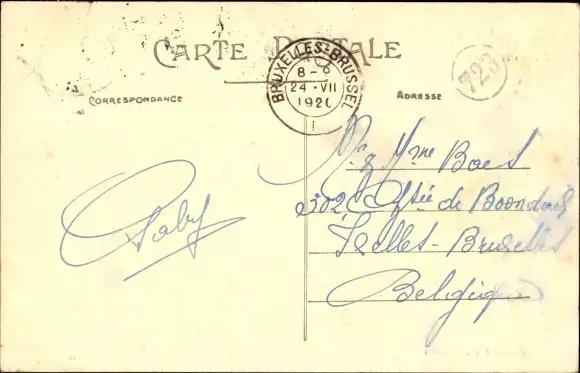 CARTE POSTALE
BRUXELLES 2 BRUSSEL
8 - 9
24 · VII
192
1
723
CORRESPONDANCE
ADRESSE
Mr & Mme Baes
302 de Boond
Gaby
Ixelles - Bruxelles
Belgique